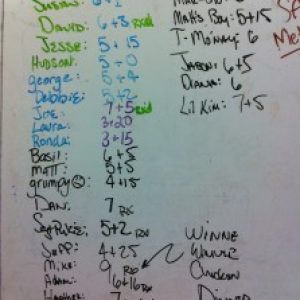 Susan: 6+1
David: 6+3 Rxd
Jesse: 5+15
Hudson: 5+0
george: 5+4
Debbie: 5+2
Joe: 7+5 Rxd
Laura: 3+20
Ronda: 3+15
Basil: 6+5
Matt: 5+5
grumpy 4+15
Dan: 7 Rx
5+2 Rx
Jeff: 4+25
Mike: 9 Rx
Adam: 6+16 Rx
Heather: 7
Matt's Boy: 5+15
T-Money: 6
Jason: 6+5
Diana: 6
Lil Kim: 7+5
WINNE
WINNE
Chicken
Dinner